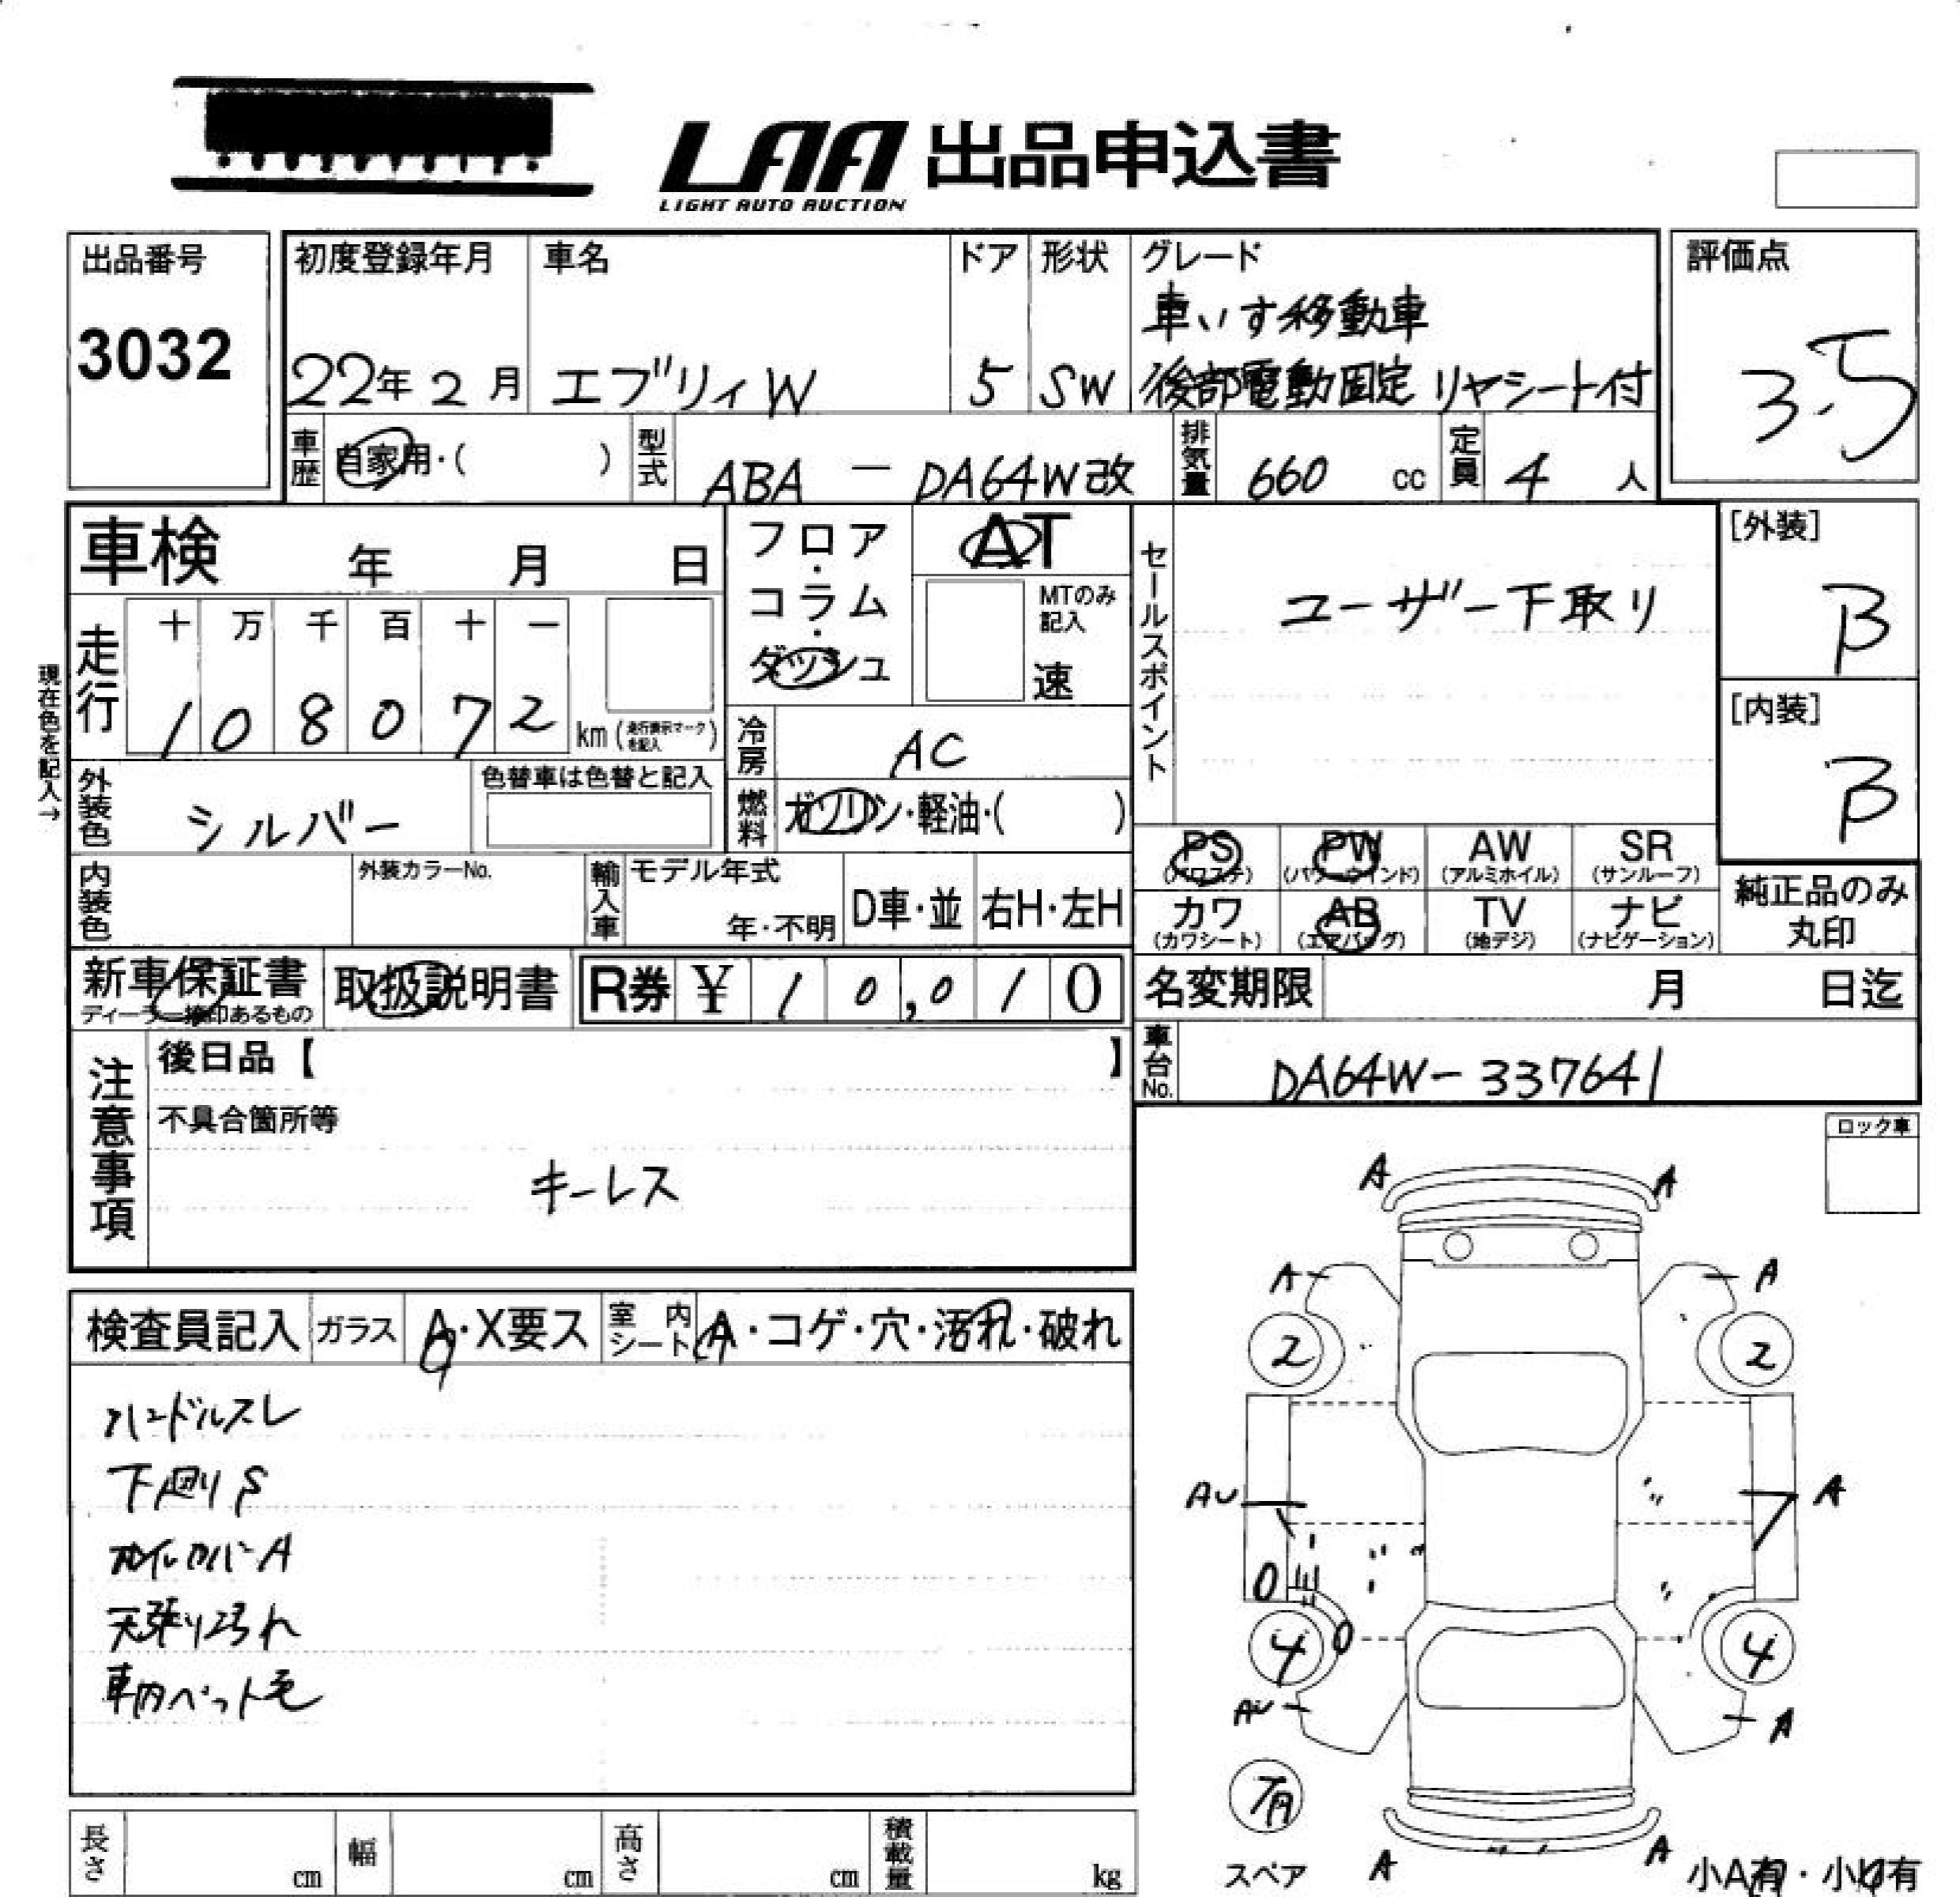 LAA 出品申込書
LIGHT AUTO AUCTION
出品番号
3032
初度登録年月
22年 2 月
車名
エブリィW
ドア
5
形状
SW
グレード
車いす移動車
後部電動固定 リヤシート付
評価点
3.5
車歴
自家用・( )
型式
ABA — DA64W改
排気量
660 cc
定員
4 人
車検 年 月 日
フロア・コラム・ダッシュ
AT
MTのみ記入
速
セールスポイント
ユーザー下取り
[外装]
B
[内装]
B
現在色を記入→
走行
十 万 千 百 十 一
1 0 8 0 7 2
km (走行表示マークを記入)
冷房
AC
燃料
ガソリン・軽油・( )
外装色
シルバー
色替車は色替と記入
内装色
外装カラーNo.
輸入車
モデル年式
年・不明
D車・並
右H・左H
PS
(パワステ)
PW
(パワーウインド)
AW
(アルミホイル)
SR
(サンルーフ)
カワ
(カワシート)
AB
(エアバッグ)
TV
(地デジ)
ナビ
(ナビゲーション)
純正品のみ
丸印
新車保証書
ディーラー捺印あるもの
取扱説明書
R券 ¥ 1 0,0 1 0
名変期限 月 日迄
車台No.
DA64W-337641
注意事項
後日品【 】
不具合箇所等
キーレス
ロック車
検査員記入
ガラス
A・X要ス
室内シート
A・コゲ・穴・汚れ・破れ
ハンドルスレ
下廻りS
ホイルカバーA
天張り汚れ
車内ペット毛
A
A
A
A
2
2
AU
A
0
4
0
4
AU
A
有
スペア
A
A
小A有・小U有
長さ cm
幅 cm
高さ cm
積載量 kg